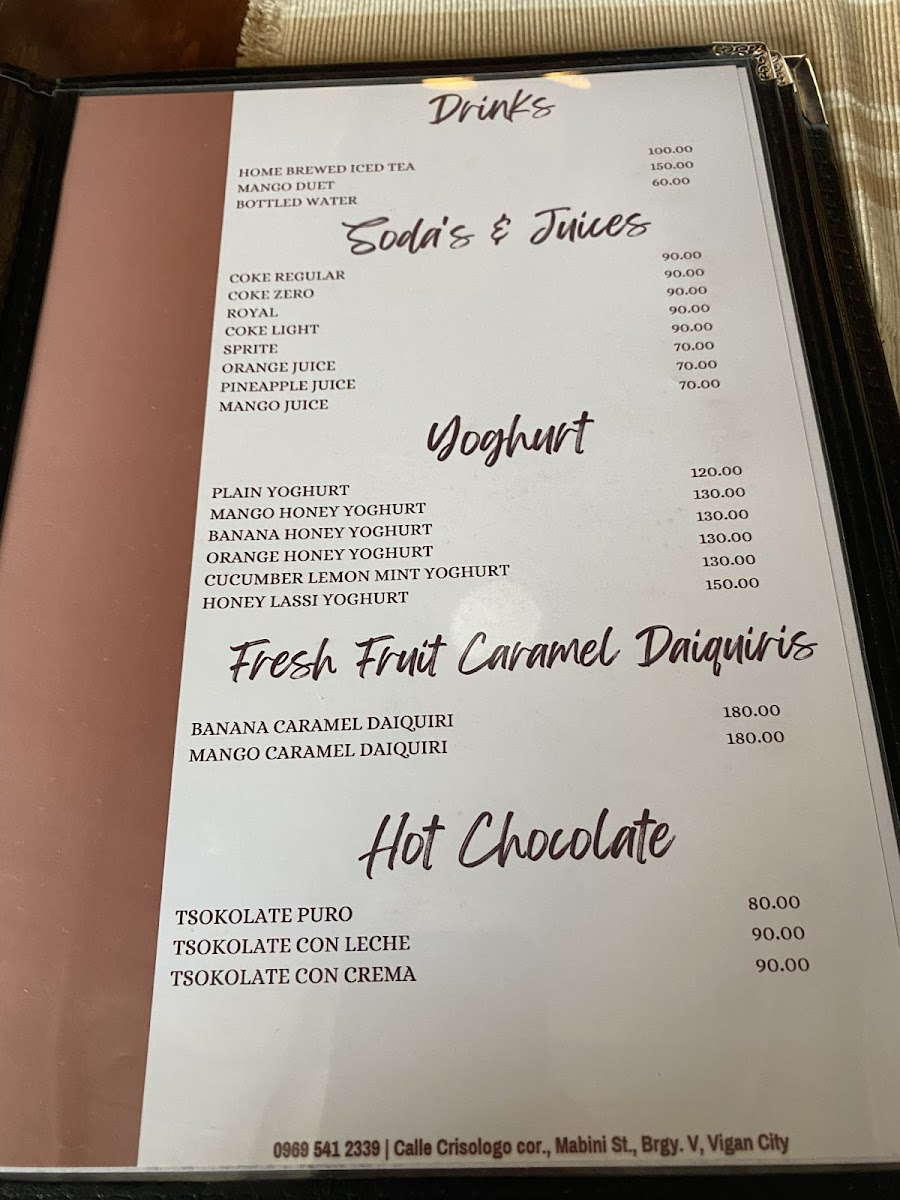 Drinks
HOME BREWED ICED TEA 100.00
MANGO DUET 150.00
BOTTLED WATER 60.00
Soda's & Juices
COKE REGULAR 90.00
COKE ZERO 90.00
ROYAL 90.00
COKE LIGHT 90.00
SPRITE 90.00
ORANGE JUICE 70.00
PINEAPPLE JUICE 70.00
MANGO JUICE 70.00
Yoghurt
PLAIN YOGHURT 120.00
MANGO HONEY YOGHURT 130.00
BANANA HONEY YOGHURT 130.00
ORANGE HONEY YOGHURT 130.00
CUCUMBER LEMON MINT YOGHURT 130.00
HONEY LASSI YOGHURT 150.00
Fresh Fruit Caramel Daiquiris
BANANA CARAMEL DAIQUIRI 180.00
MANGO CARAMEL DAIQUIRI 180.00
Hot Chocolate
TSOKOLATE PURO 80.00
TSOKOLATE CON LECHE 90.00
TSOKOLATE CON CREMA 90.00
0969 541 2339 | Calle Crisologo cor., Mabini St., Brgy. V, Vigan City